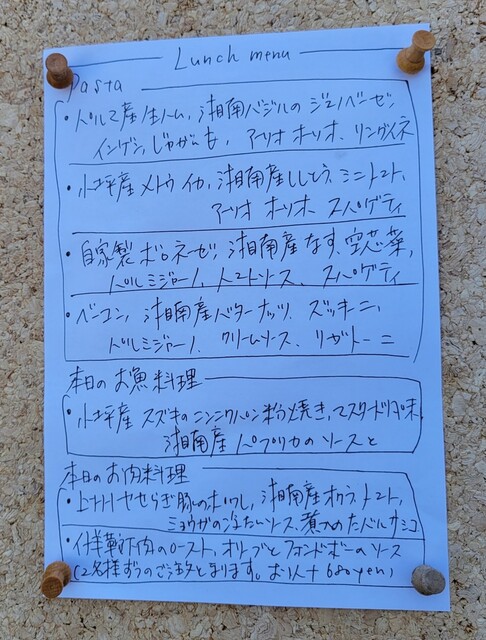 Lunch menu
Pasta
・パルマ産生ハム、湘南バジルのジェノベーゼ、
インゲン、じゃがいも、アーリオ オーリオ、リングイネ
・小坪産メトウイカ、湘南産ししとう、ミニトマト、
アーリオ オーリオ、スパゲティ
・自家製ボロネーゼ、湘南産なす、空芯菜、
パルミジャーノ、トマトソース、スパゲティ
・ベーコン、湘南産バターナッツ、ズッキーニ、
パルミジャーノ、クリームソース、リガトーニ
本日のお魚料理
・小坪産スズキのニンニクパン粉焼き、マスタード風味
湘南産パプリカのソースと
本日のお肉料理
・豚のボッリ、湘南産オクラ、トマト、
ミョウガの冷たいソース、
・仔羊 肉のロースト、オリーブとフォンドボーのソース
(2名様ずつのご注文となります。お1人+680yen)